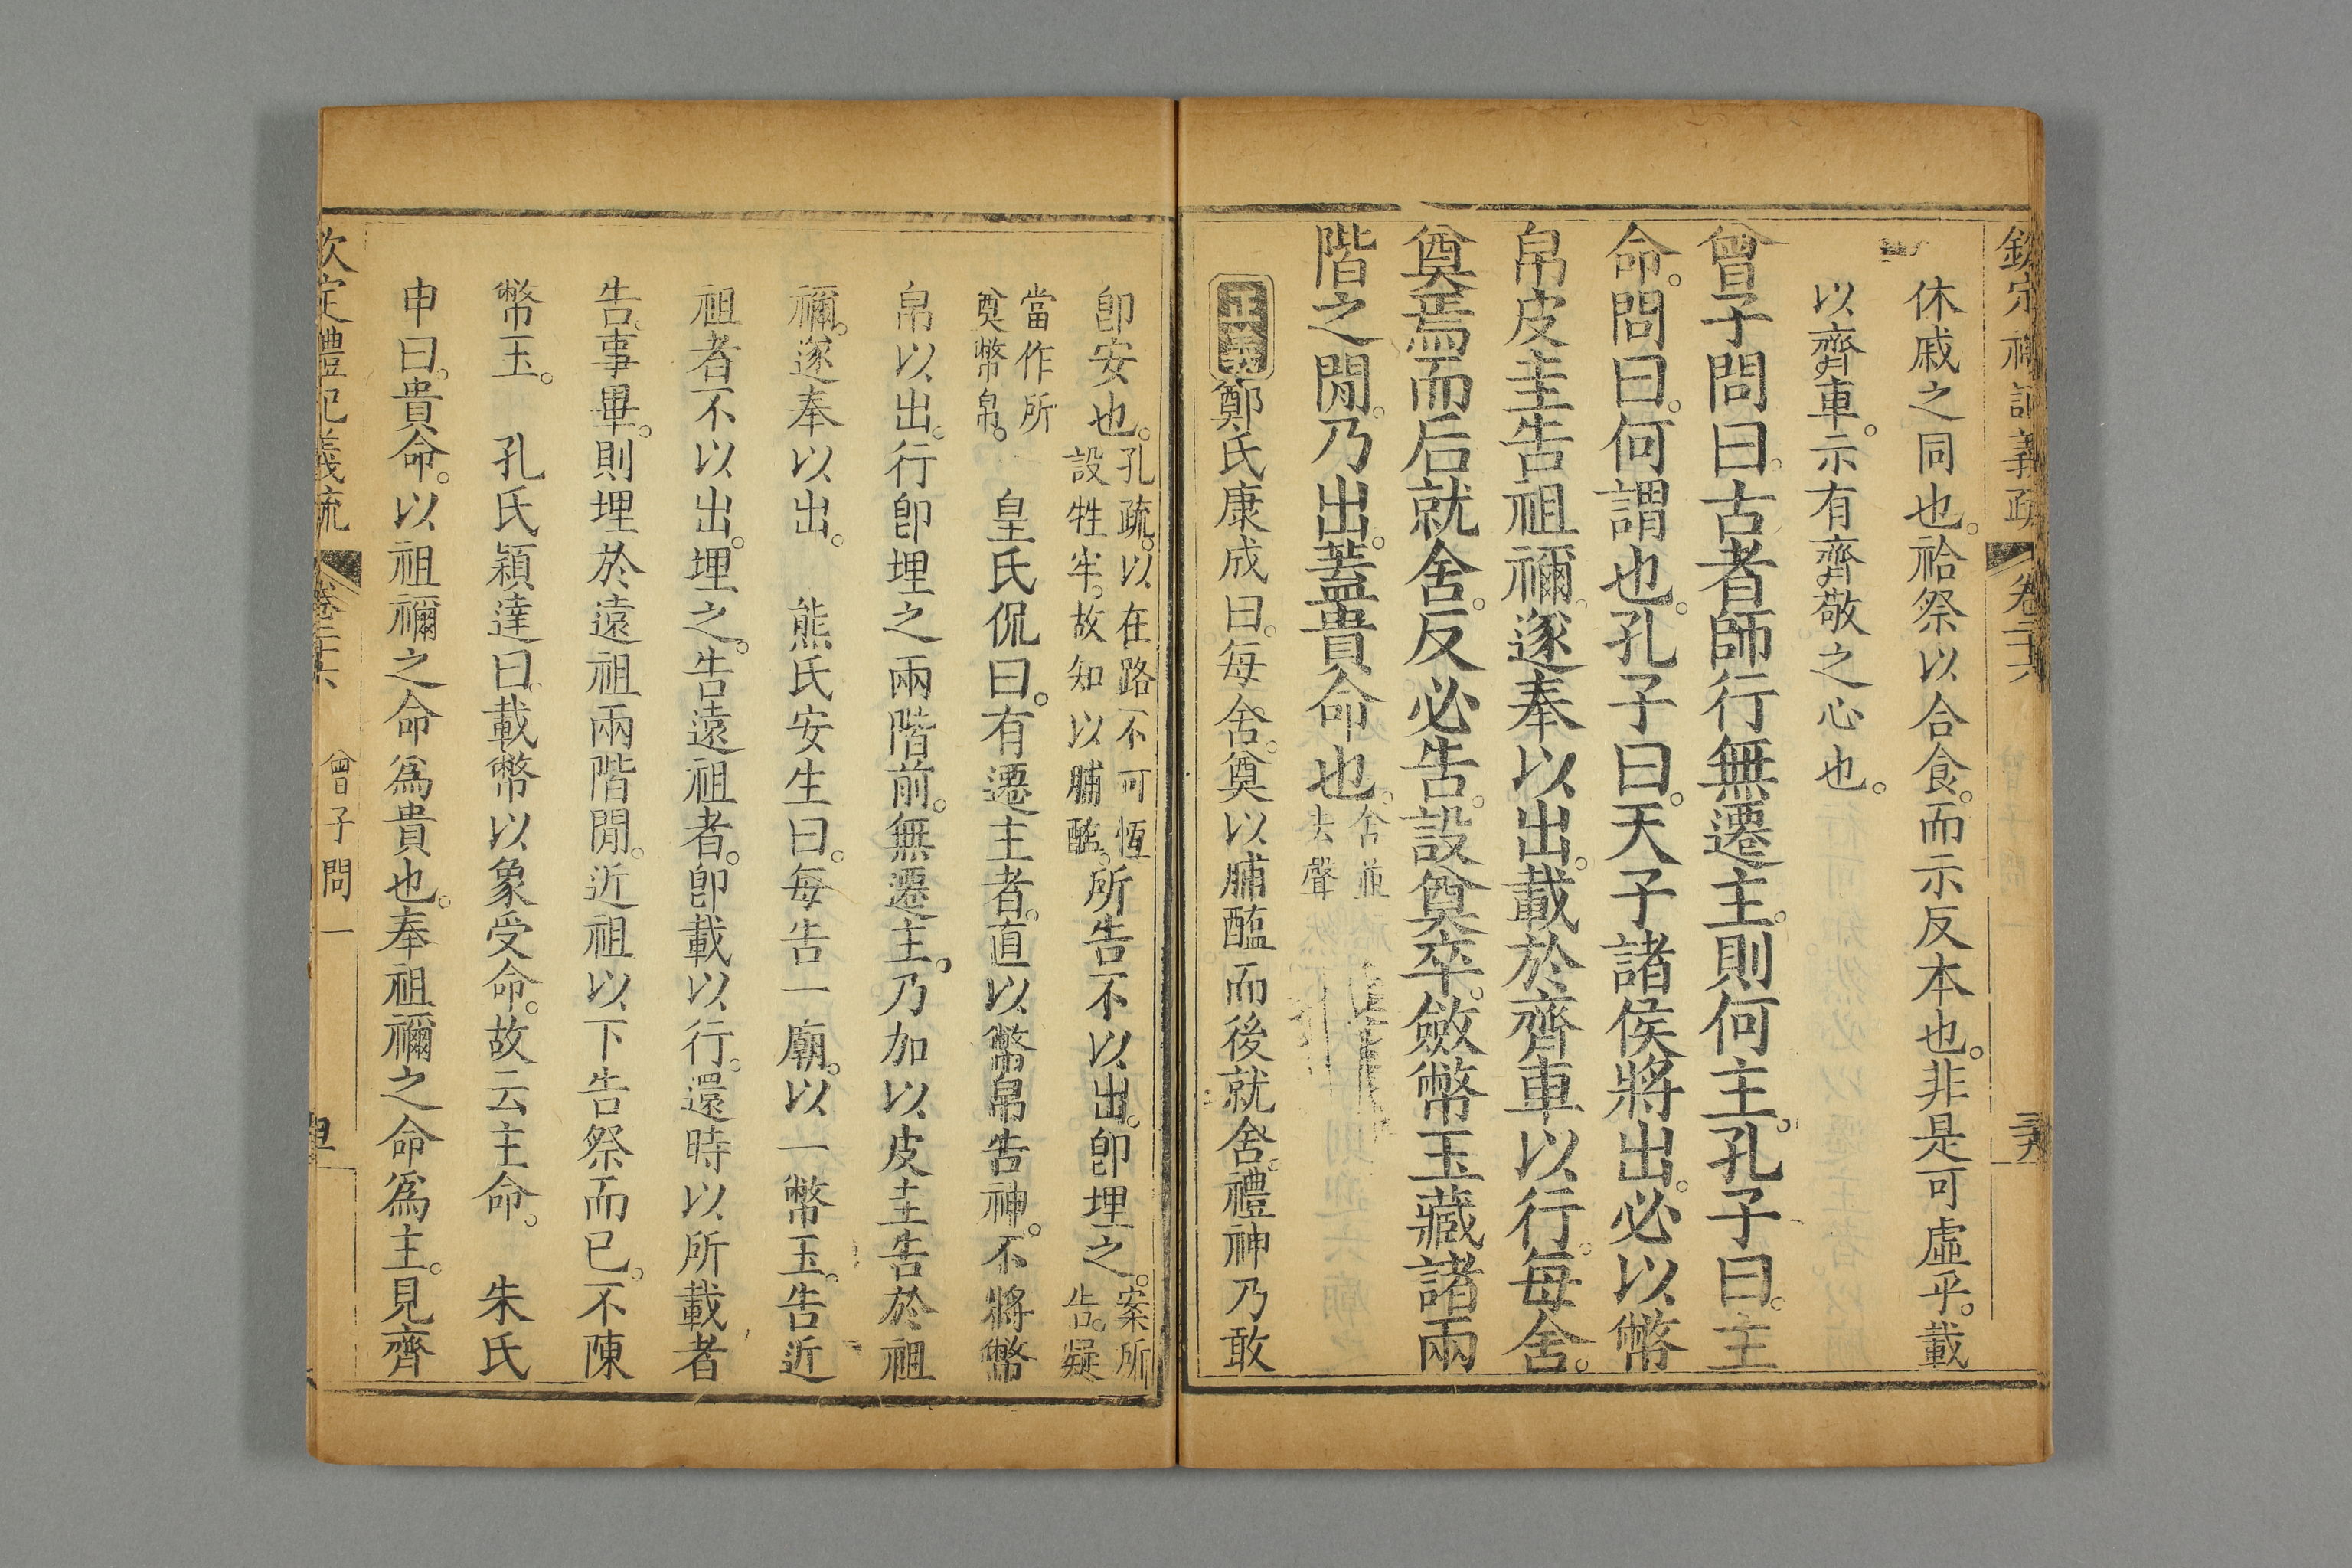 欽定禮記義疏 卷二十六
休戚之同也。祫祭以合食。而示反本也。非是可虛乎。載
以齊車。示有齊敬之心也。
曾子問曰。古者師行無遷主。則何主。孔子曰。主
命。問曰。何謂也。孔子曰。天子諸侯將出。必以幣
帛皮圭告祖禰。遂奉以出。載於齊車以行。每舍。
奠焉而后就舍。反必告。設奠卒。斂幣玉藏諸兩
階之閒。乃出。蓋貴命也。舍並去聲
正義 鄭氏康成曰。每舍。奠以脯醢而後就舍。禮神乃敢
卽安也。孔疏。以在路不可恆設牲牢。故知以脯醢。所告不以出。卽埋之。案所告。疑
當作所奠幣帛。 皇氏侃曰。有遷主者。直以幣帛告神。不將幣
帛以出。行卽埋之兩階前。無遷主。乃加以皮圭告於祖
禰。遂奉以出。 熊氏安生曰。每告一廟。以一幣玉。告近
祖者不以出。埋之。告遠祖者。卽載以行。還時以所載者
告。事畢。則埋於遠祖兩階閒。近祖以下告祭而已。不陳
幣玉。 孔氏穎達曰。載幣以象受命。故云主命。 朱氏
申曰。貴命。以祖禰之命爲貴也。奉祖禰之命爲主。見齊
欽定禮記義疏 卷二十六 曾子問一